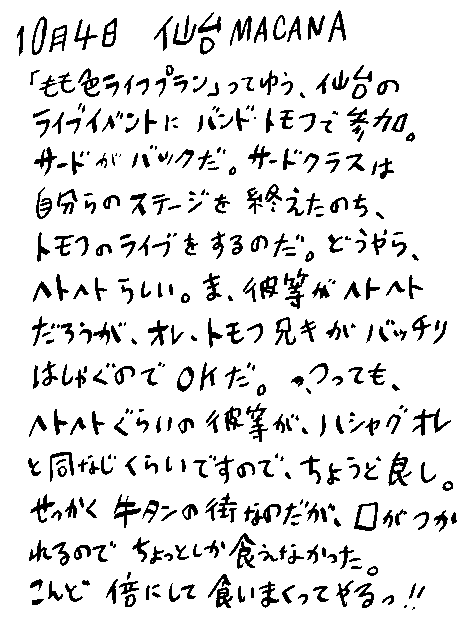 10月4日 仙台MACANA
「もも色ライフプラン」ってゆう、仙台の
ライブイベントにバンド・トモフで参加。
サードがバックだ。サードクラスは
自分らのステージを終えたのち、
トモフのライブをするのだ。どうやら、
ヘトヘトらしい。ま、彼等がヘトヘト
だろうが、オレ、トモフ兄キがバッチリ
はしゃぐのでOKだ。っ、つっても、
ヘトヘトぐらいの彼等が、ハシャグオレ
と同なじくらいですので、ちょうど良し。
せっかく牛タンの街なのだが、口がつか
れるのでちょっとしか食えなかった。
こんど倍にして食いまくってやるっ!!